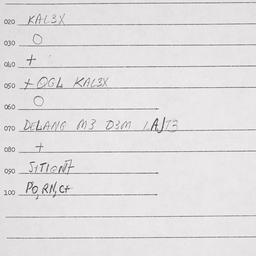 020 KAL3X
030 O
040 +
050 + OGL KAL3X
060 O
070 DELANG M3 D3M
080 +
090
100 PO, RN, C+